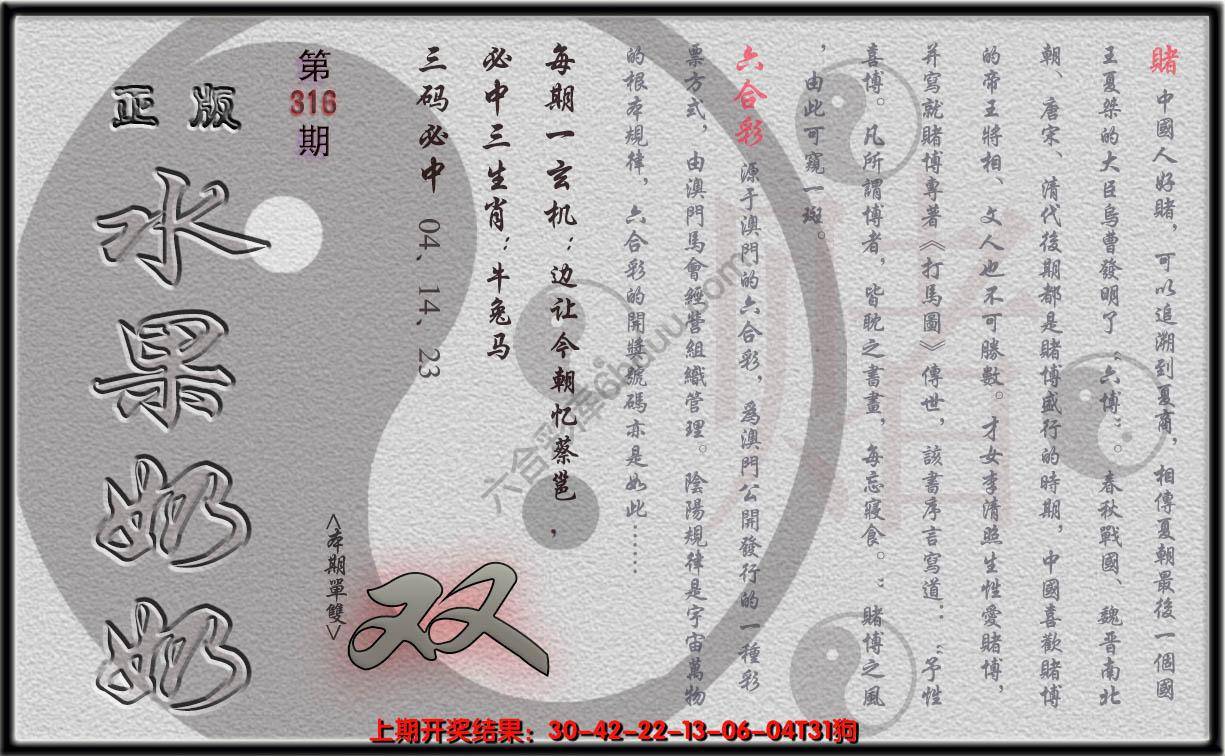 賭 中國人好賭，可以追溯到夏商，相傳夏朝最後一個國
王夏桀的大臣烏曹發明了“六博”。春秋戰國、魏晋南北
朝、唐宋、清代後期都是賭博盛行的時期，中國喜歡賭博
的帝王將相、文人也不可勝數。才女李清照生性愛賭博，
并寫就賭博專著《打馬圖》傳世，該書序言寫道：“予性
喜博。凡所謂博者，皆耽之書畫，每忘寢食。”賭博之風
，由此可窺一斑。
六合彩 源于澳門的六合彩，爲澳門公開發行的一種彩
票方式，由澳門馬會經營組織管理。陰陽規律是宇宙萬物
的根本規律，六合彩的開獎號碼亦是如此……
每期一玄机：边让今朝忆蔡邕，
必中三生肖：牛兔马
三码必中 04、14、23
第316期
<本期單雙>
双
正版
水果奶奶
六合彩库6hbuuu.com
上期开奖结果：30-42-22-13-06-04T31狗